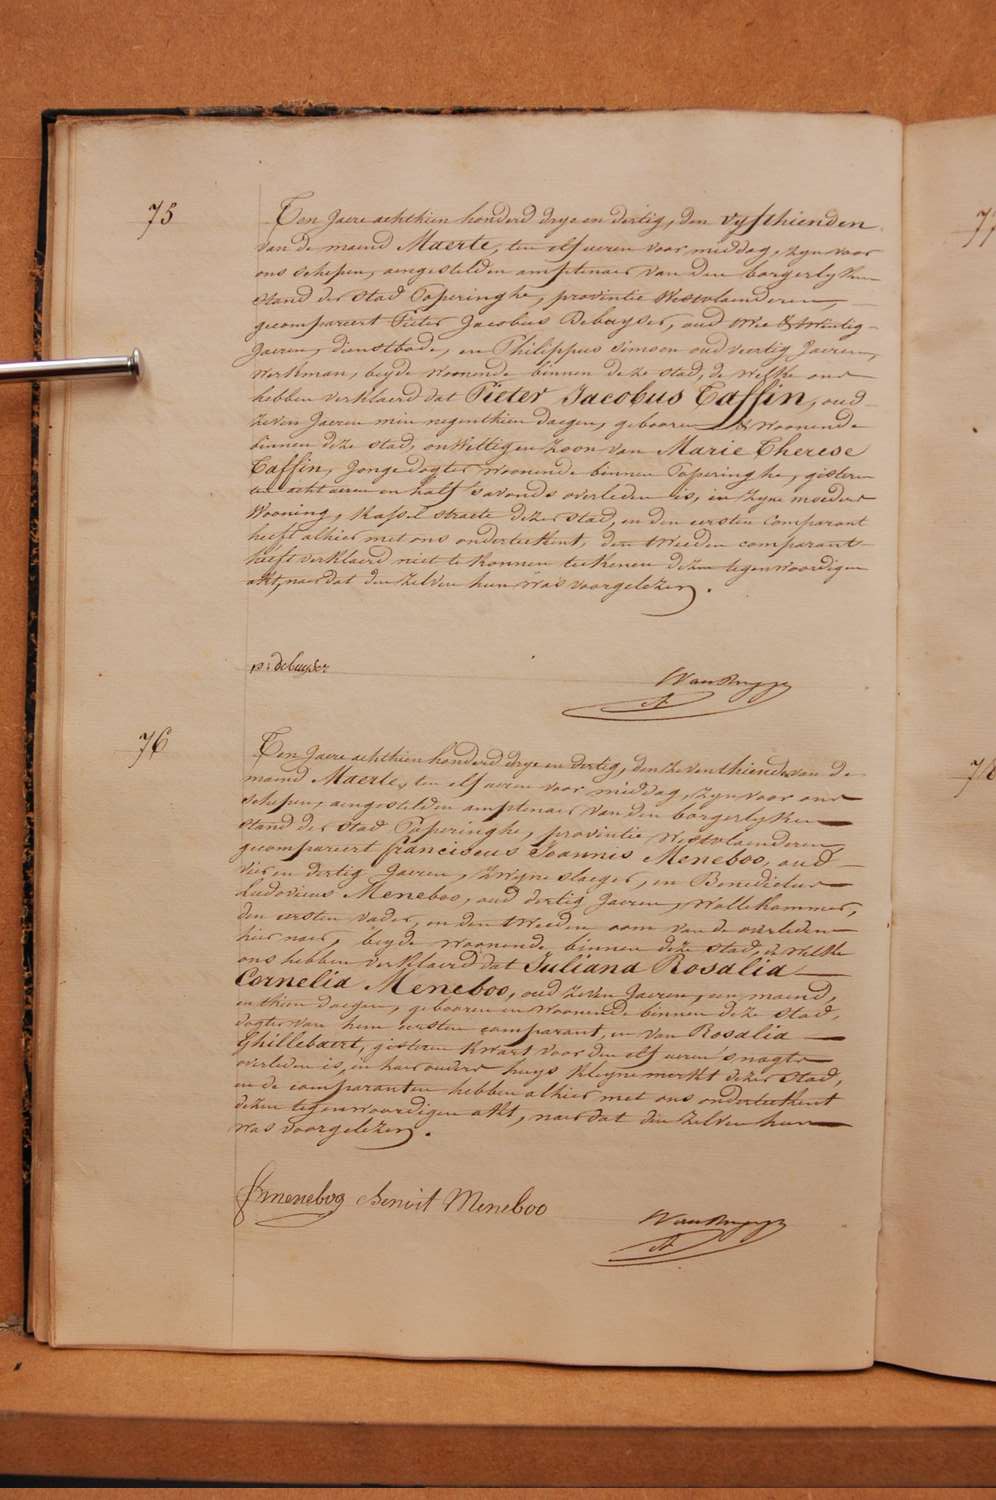 75
Ten Jaere achthien honderd drye en dertig, den vyfthienden
van de maend Maerte, ten elf ueren voor middag, zyn voor
ons schepen, aengestelden amptenaer van den borgerlyken
stand der Stad Poperinghe, provintie Westvlaenderen,
gecompareert Pieter Jacobus Debuyser, oud twintig
Jaeren, dienstbode, en Philippus Simoen oud veertig Jaeren,
werkman, beyde woonende binnen deze stad, de welke ons
hebben verklaerd dat Pieter Jacobus Taffin, oud
zeven Jaeren min negenthien daegen, gebooren & woonende
binnen deze stad, onwettigen zoon van Marie Therese
Taffin, Jonge dogter woonende binnen Poperinghe, gisteren
ten acht ueren en half 's avonds overleden is, in zyne moeders
wooning, Kassel straete dezer stad, en den eersten comparant
heeft alhier met ons onderteekent, den tweeden comparant
heeft verklaerd niet te konnen teekenen dezen tegenwoordigen
akt, naer dat den zelven hun was voorgelezen.
p: debuyser
Van Ruyge
76
Ten Jaere achthien honderd drye en dertig, den zeventhiende van de
maend Maerte, ten elf ueren voor middag, zyn voor ons
schepen, aengestelden amptenaer van den borgerlyken
stand der Stad Poperinghe, provintie Westvlaenderen,
gecompareert franciscus Joannis Meneboo, oud
vier en dertig Jaeren, zwyne slaeger, en Benedictus
Ludovicus Meneboo, oud dertig Jaeren, wollekammer,
den eersten vader, en den tweeden oom van de overleden
hier naer, beyde woonende binnen deze stad, de welke
ons hebben verklaerd dat Juliana Rosalia
Cornelia Meneboo, oud zeven Jaeren, een maend,
en thien daegen, gebooren en woonende binnen deze stad,
dogter van hem eersten comparant, en van Rosalia
Ghillebaert, gisteren kwart voor den elf ueren snagts
overleden is, in haer ouders huys kleyne merkt dezer stad,
en de comparanten hebben alhier met ons onderteekent
dezen tegenwoordigen akt, naer dat den zelven hun
was voorgelezen.
meneboo Benoit Meneboo
Van Ruyge